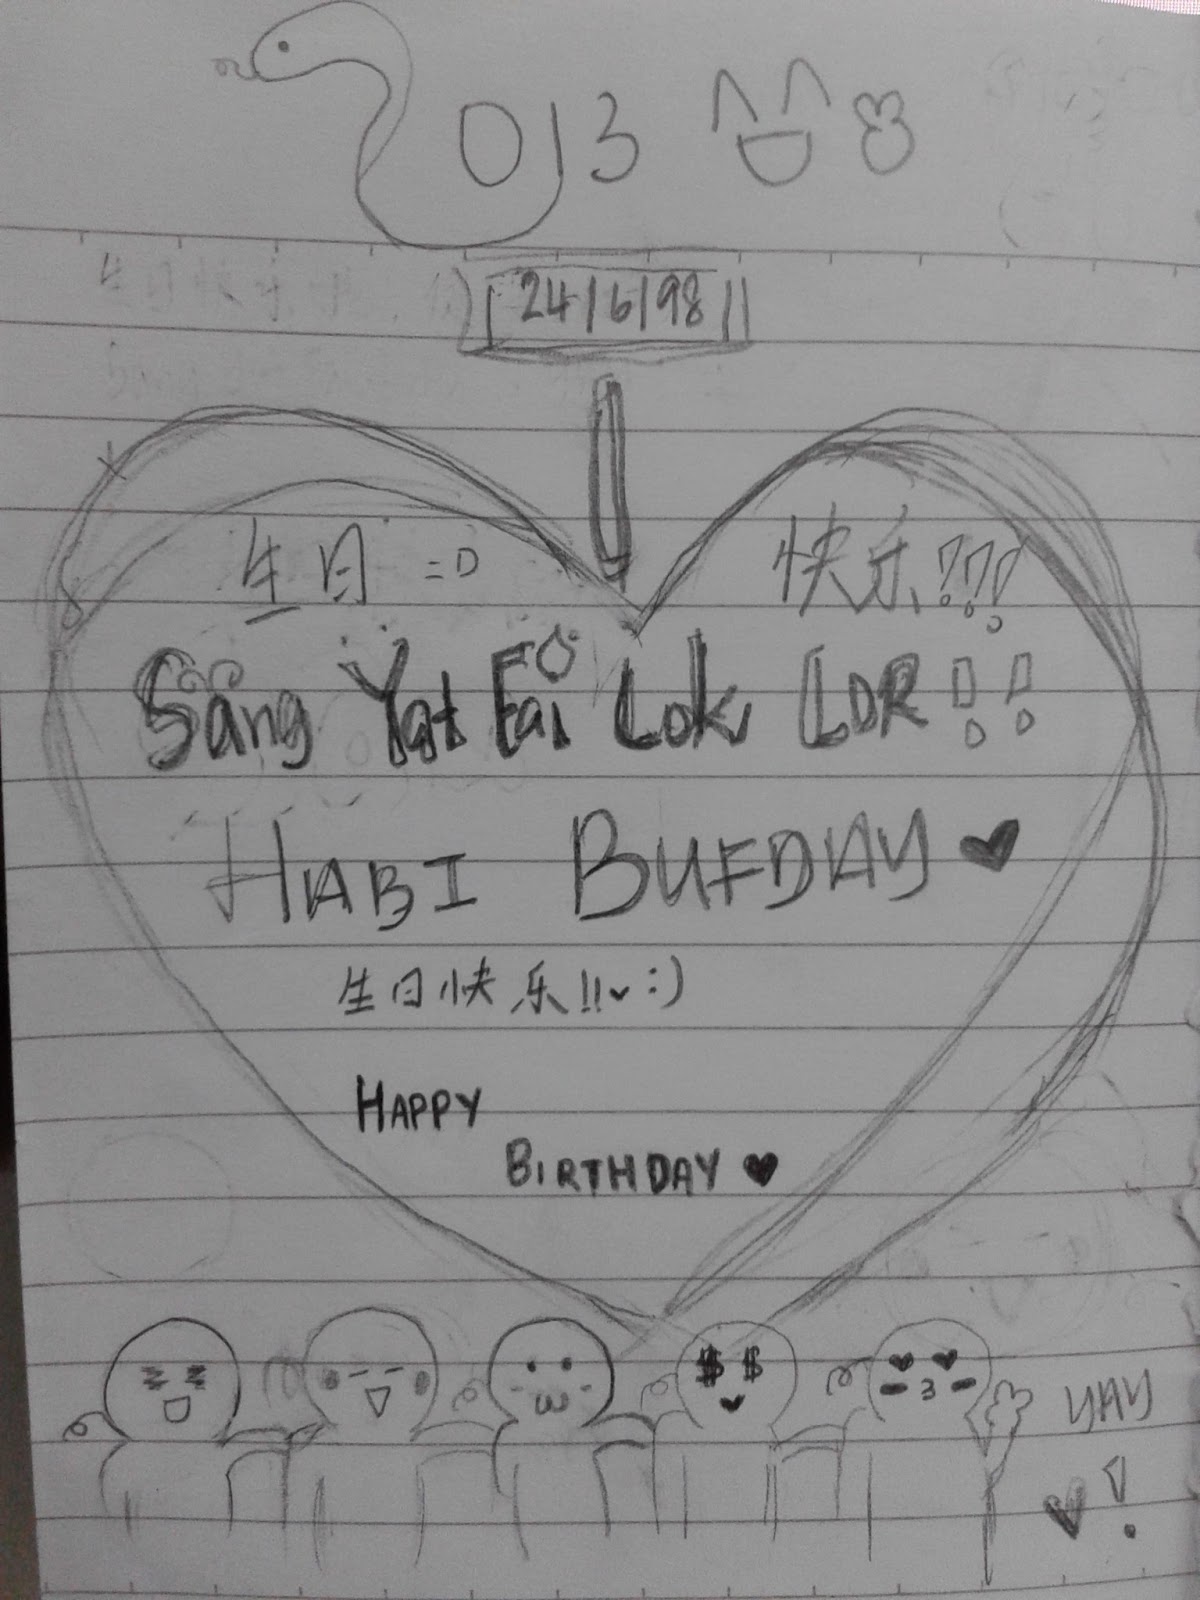 2013
24/6/98
生日 =D 快乐!!!
Sang Yat Fai Lok LDR!!
HABI BUFDAY ♥
生日快乐!!♥:)
HAPPY
BIRTHDAY ♥
YAY
♥!